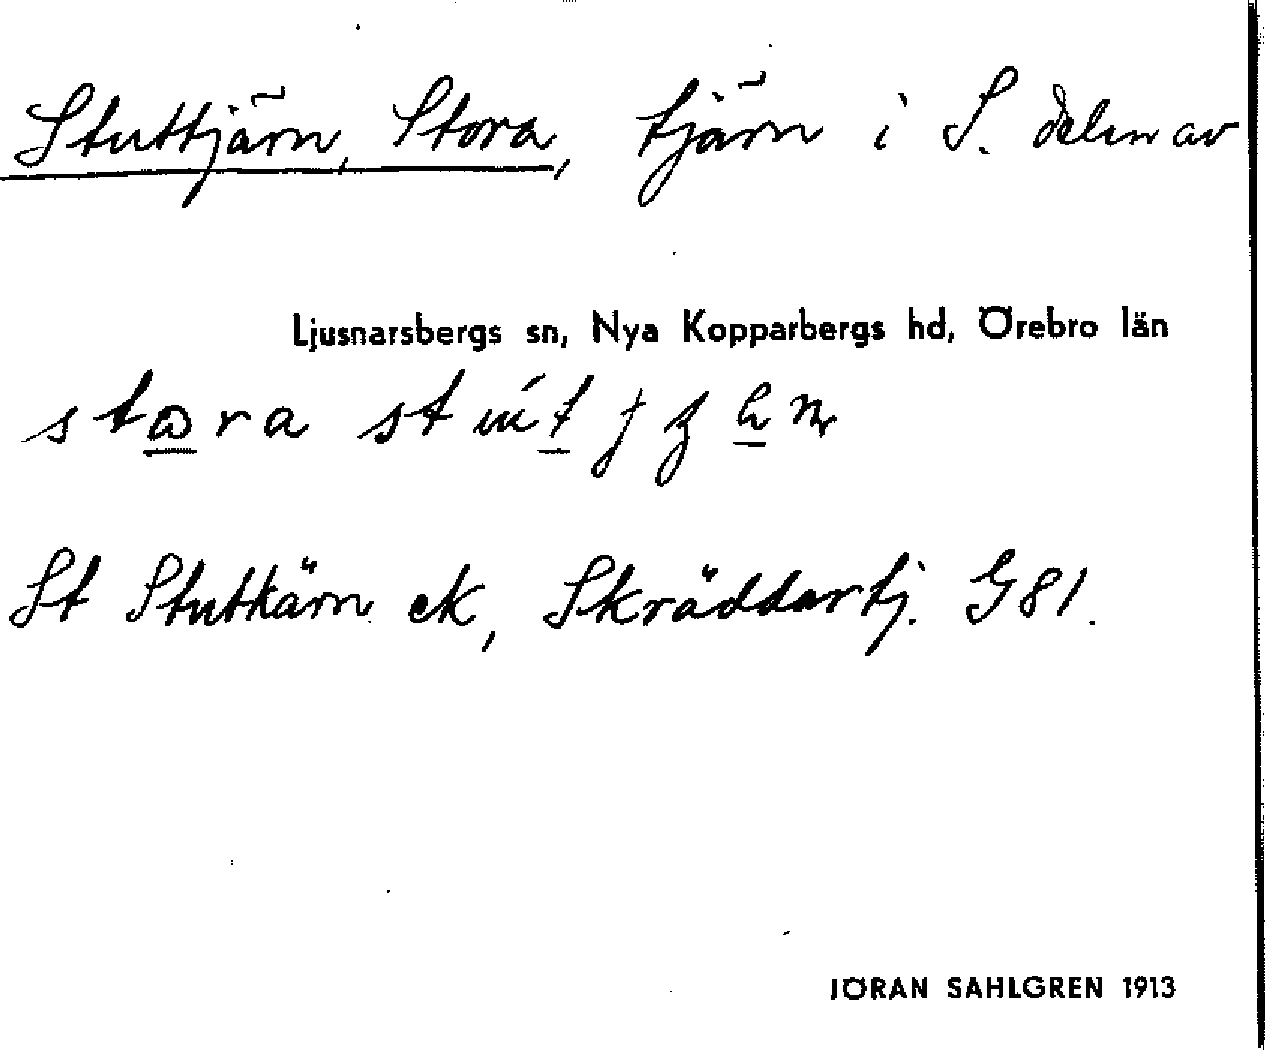 Stuttjärn, Stora, tjärn i S. delen av
Ljusnarsbergs sn, Nya Kopparbergs hd, Örebro län
stora
St Stuttkärn ek, Skräddartj. G 81.
JÖRAN SAHLGREN 1913